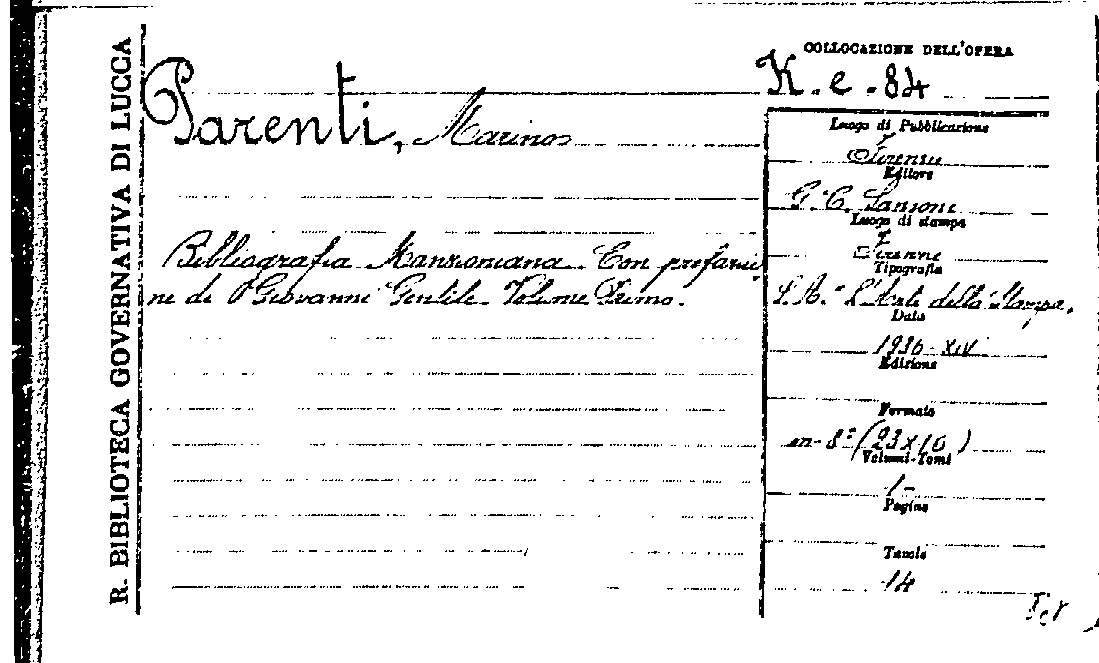 R. BIBLIOTECA GOVERNATIVA DI LUCCA
Parenti, Marino
Bibliografia Manzoniana. Con prefazio
ne di Giovanni Gentile. Volume Primo.
COLLOCAZIONE DELL'OPERA
K. e. 84
Luogo di Pubblicazione
Firenze
Editore
G. C. Sansoni
Luogo di stampa
Firenze
Tipografia
S. A. "L'Arte della Stampa,
Data
1936-XIV
Edizione
Formato
in-8° (23x16)
Volumi-Tomi
1-
Pagine
Tavole
14